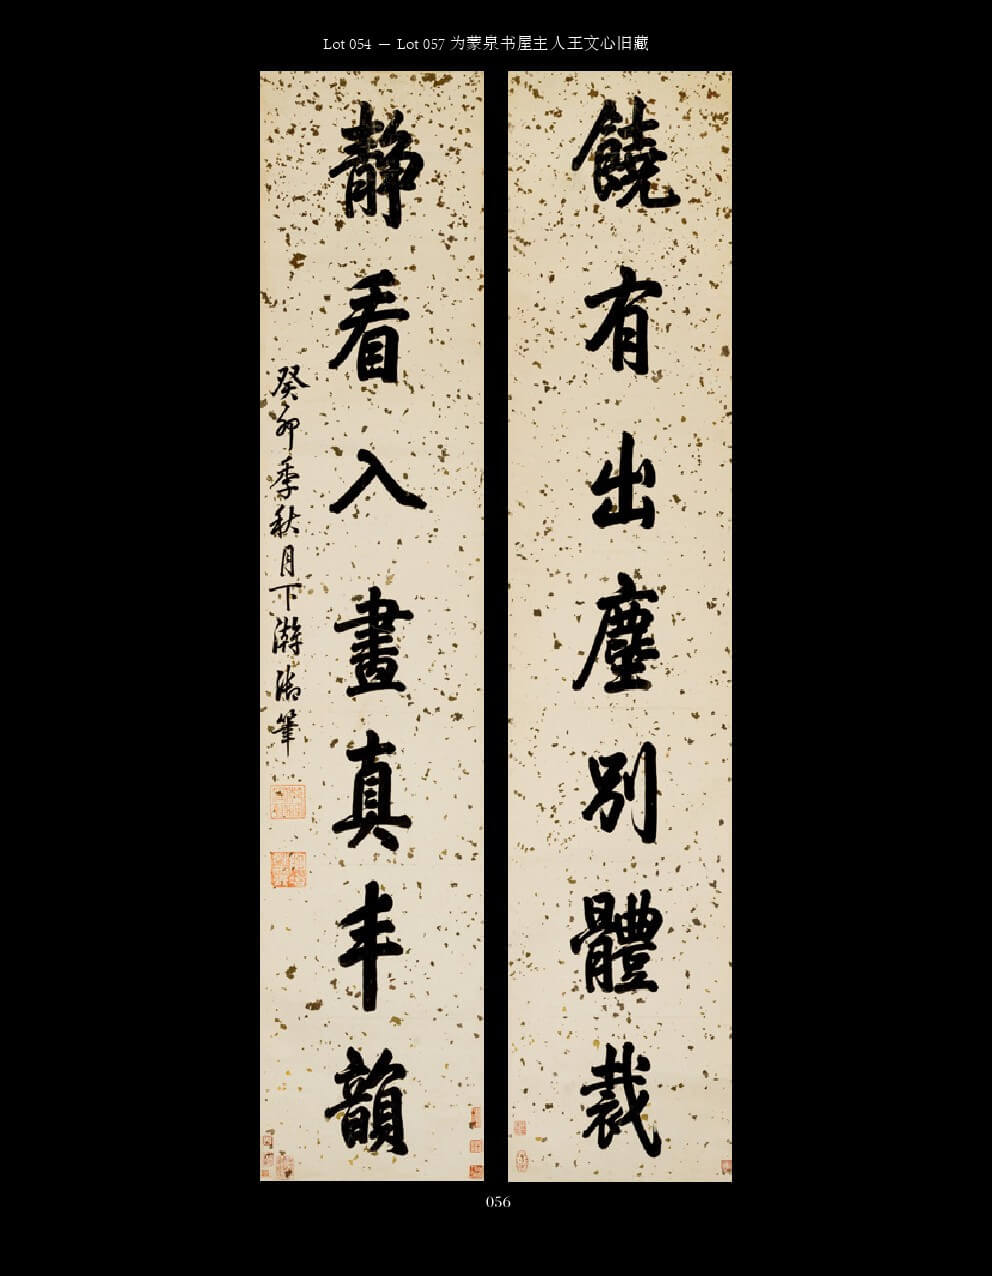 Lot 054 — Lot 057 为蒙泉书屋主人王文心旧藏
饒有出塵別體裁
靜看入畫真丰韻
癸卯季秋月下澣 筆
056